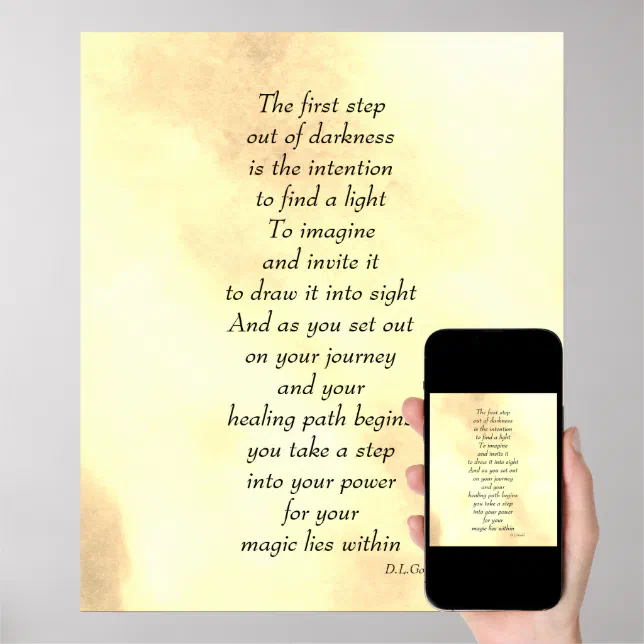 The first step
out of darkness
is the intention
to find a light
To imagine
and invite it
to draw it into sight
And as you set out
on your journey
and your
healing path begins
you take a step
into your power
for your
magic lies within
D.L.Go
The first step
out of darkness
is the intention
to find a light
To imagine
and invite it
to draw it into sight
And as you set out
on your journey
and your
healing path begins
you take a step
into your power
for your
magic lies within